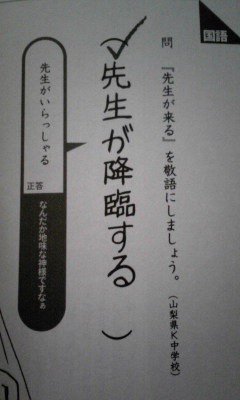 国語
問 『先生が来る』を敬語にしましょう。(山梨県K中学校)
先生が降臨する )
先生がいらっしゃる
正答
なんだか地味な神様ですなぁ